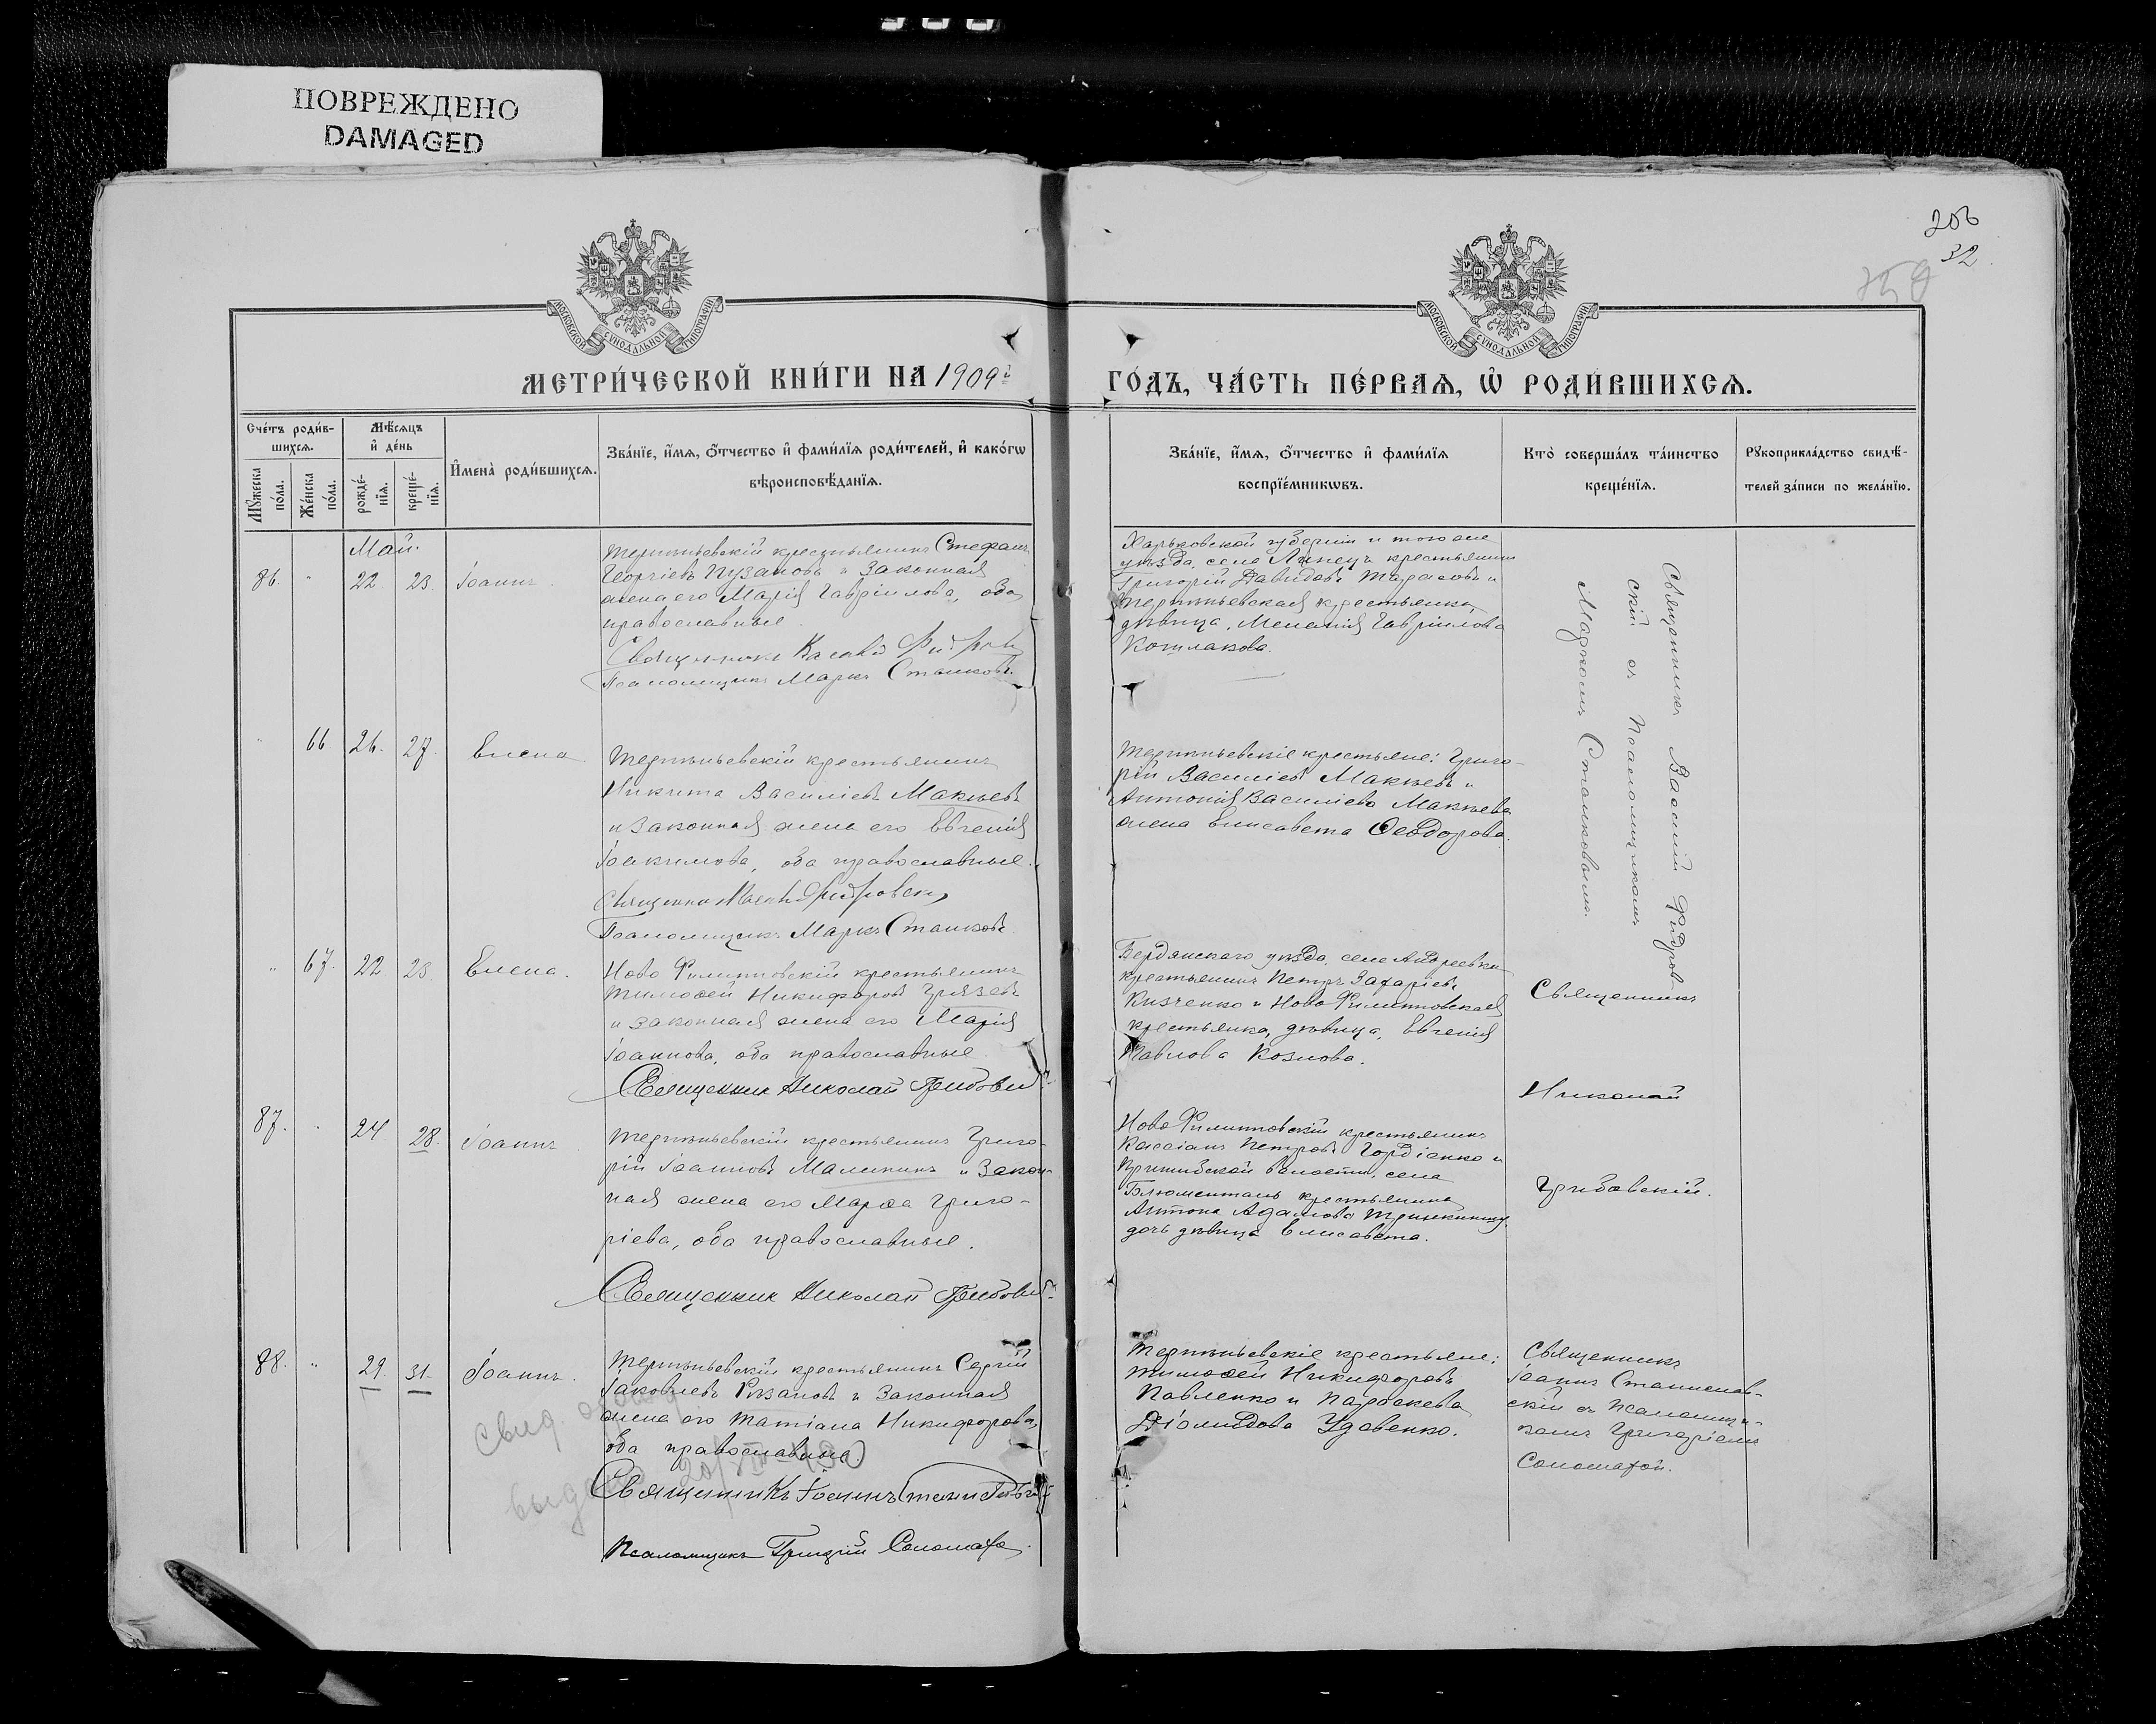 ПОВРЕЖДЕНО
DAMAGED
206
32
МОСКОВСКОЙ СѴНОДАЛЬНОЙ ТИПОГРАФІИ
МОСКОВСКОЙ СѴНОДАЛЬНОЙ ТИПОГРАФІИ
МЕТРИ́ЧЕСКОЙ КНИ́ГИ НА 1909й
ГО́ДЪ, ЧА́СТЬ ПЕ́РВАѦ, Ѡ҆ РОДИ́ВШИХСѦ.
Сче́тъ роди́в-
шихсѧ.
Мѣ́сѧцъ
и҆ де́нь
Мꙋ́жеска
по́ла.
Же́нска
по́ла.
рожде́-
нїѧ.
креще́-
нїѧ.
И҆мена̀ роди́вшихсѧ.
Зва́нїе, и҆́мѧ, ѻ҆́тчество и҆ фами́лїѧ роди́телей, и҆ како́гѡ
вѣроисповѣ́данїѧ.
Зва́нїе, и҆́мѧ, ѻ҆́тчество и҆ фами́лїѧ
воспрїе́мникѡвъ.
Кто̀ соверша́лъ та́инство
креще́нїѧ.
Рꙋкоприкла́дство свидѣ́-
телей за́писи по жела́нїю.
Май.
86. " 22 23. Іоаннъ.
Терпѣньевскій крестьянинъ Стефанъ
Георгіевъ Пузановъ и законная
жена его Марія Гавріилова, оба
православные.
Священникъ
Псаломщикъ Маркъ Станковъ.
Харьковской губерніи и того же
уѣзда, села Липецъ крестьянинъ
Григорій Давидовъ Тарасовъ и
Терпѣньевская крестьянка,
дѣвица, Меланія Гавріилова
Кошлакова.
Священникъ Василій Фидров-
скій съ Псаломщикомъ
Маркомъ Станковымъ.
" 66 26. 27. Елена.
Терпѣньевскій крестьянинъ
Никита Василіевъ Макѣевъ
и законная жена его Евгенія
Іоакимова, оба православные.
Псаломщикъ Маркъ Станковъ.
Терпѣньевскіе крестьяне: Григо-
рій Василіевъ Макѣевъ и
Антонія Василіева Макѣева
жена Елисавета Ѳеодорова.
" 67. 22 23. Елена.
Ново Филипповскій крестьянинъ
Тимоѳей Никифоровъ Грязевъ
и законная жена его Марія
Іоаннова, оба православные.
Священник Николай Грибовскій
Бердянскаго уѣзда, села Андреевки
крестьянинъ Петръ Захаріевъ
Кизченко и Ново Филипповская
крестьянка, дѣвица, Евгенія
Павлова Козлова.
Священникъ
Николай
Грибовскій.
87. " 24 28. Іоаннъ.
Терпѣньевскій крестьянинъ Григо-
рій Іоанновъ Малининъ и закон-
ная жена его Марѳа Григо-
ріева, оба православные.
Священник Николай Грибовскій
Ново Филипповскій крестьянинъ
Кассіанъ Петровъ Гордіенко и
Пришибской волости, села
Блюменталь крестьянина
Антона Адамова
дочь дѣвица Елисавета.
88. " 29. 31. Іоаннъ.
Терпѣньевскій крестьянинъ Сергій
Іаковлевъ Рязановъ и законная
жена его Татіана Никифорова,
оба православные.
Священникъ Іоаннъ Станиславскій
Псаломщикъ Григорій Соломаха.
Свид.
выдано
Терпѣньевскіе крестьяне:
Тимоѳей Никифоровъ
Павленко и Параскева
Діомидова Удовенко.
Священникъ
Іоаннъ Станислав-
скій съ псаломщи-
комъ Григоріемъ
Соломахой.